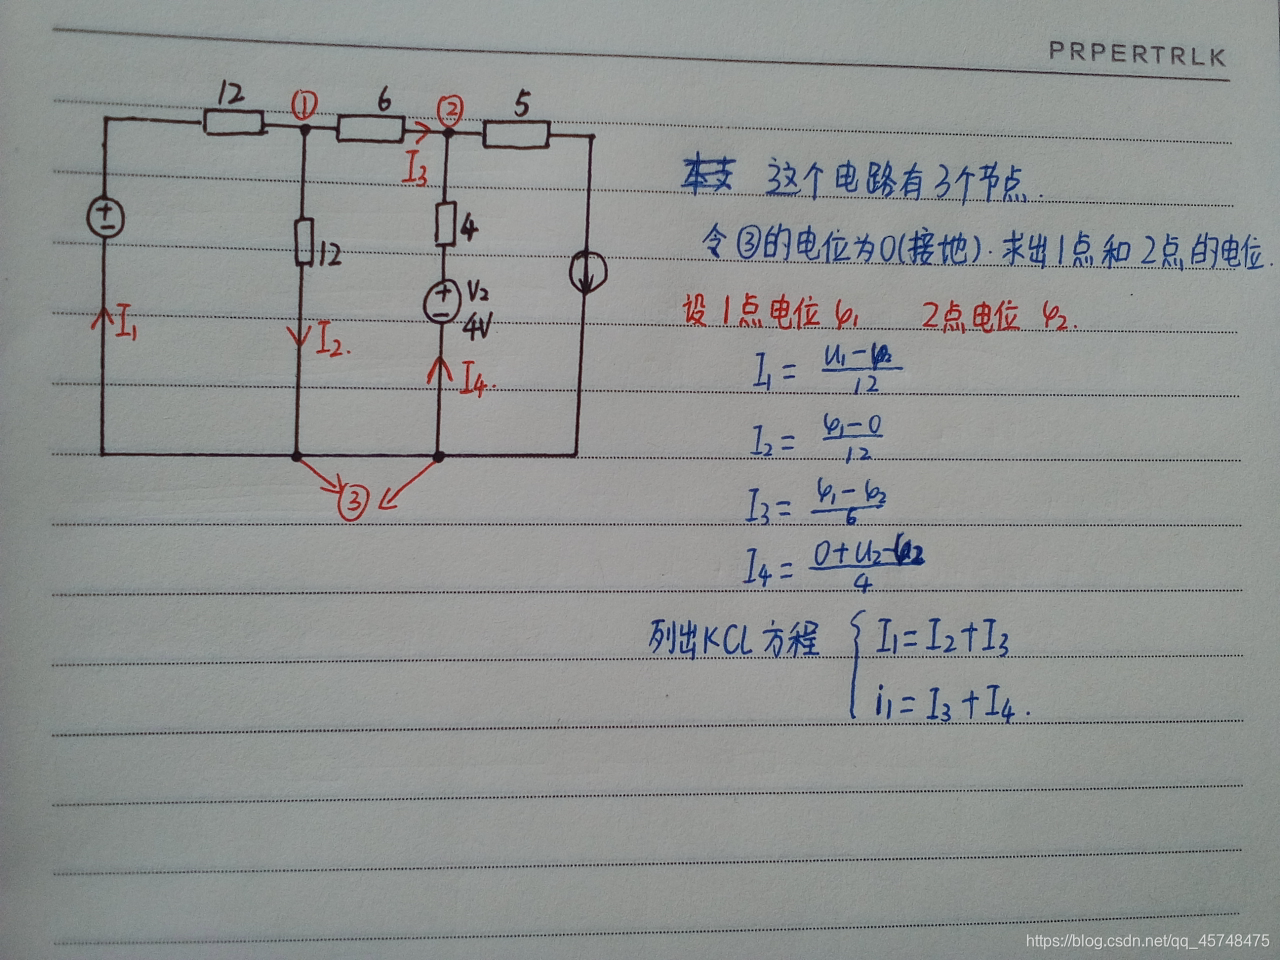 PRPERTRLK
12
①
6
②
5
I₃
4
12
V₂
4V
I₁
I₂.
I₄.
③
这个电路有3个节点.
令③的电位为0(接地).求出1点和2点的电位.
设1点电位φ₁ 2点电位φ₂.
I₁ =
I₂ = φ₁-0/12
I₃ = φ₁-φ₂/6
I₄ = 0+U₂-φ₂/4
列出KCL方程 { I₁=I₂+I₃
i₁=I₃+I₄.
https://blog.csdn.net/qq_45748475